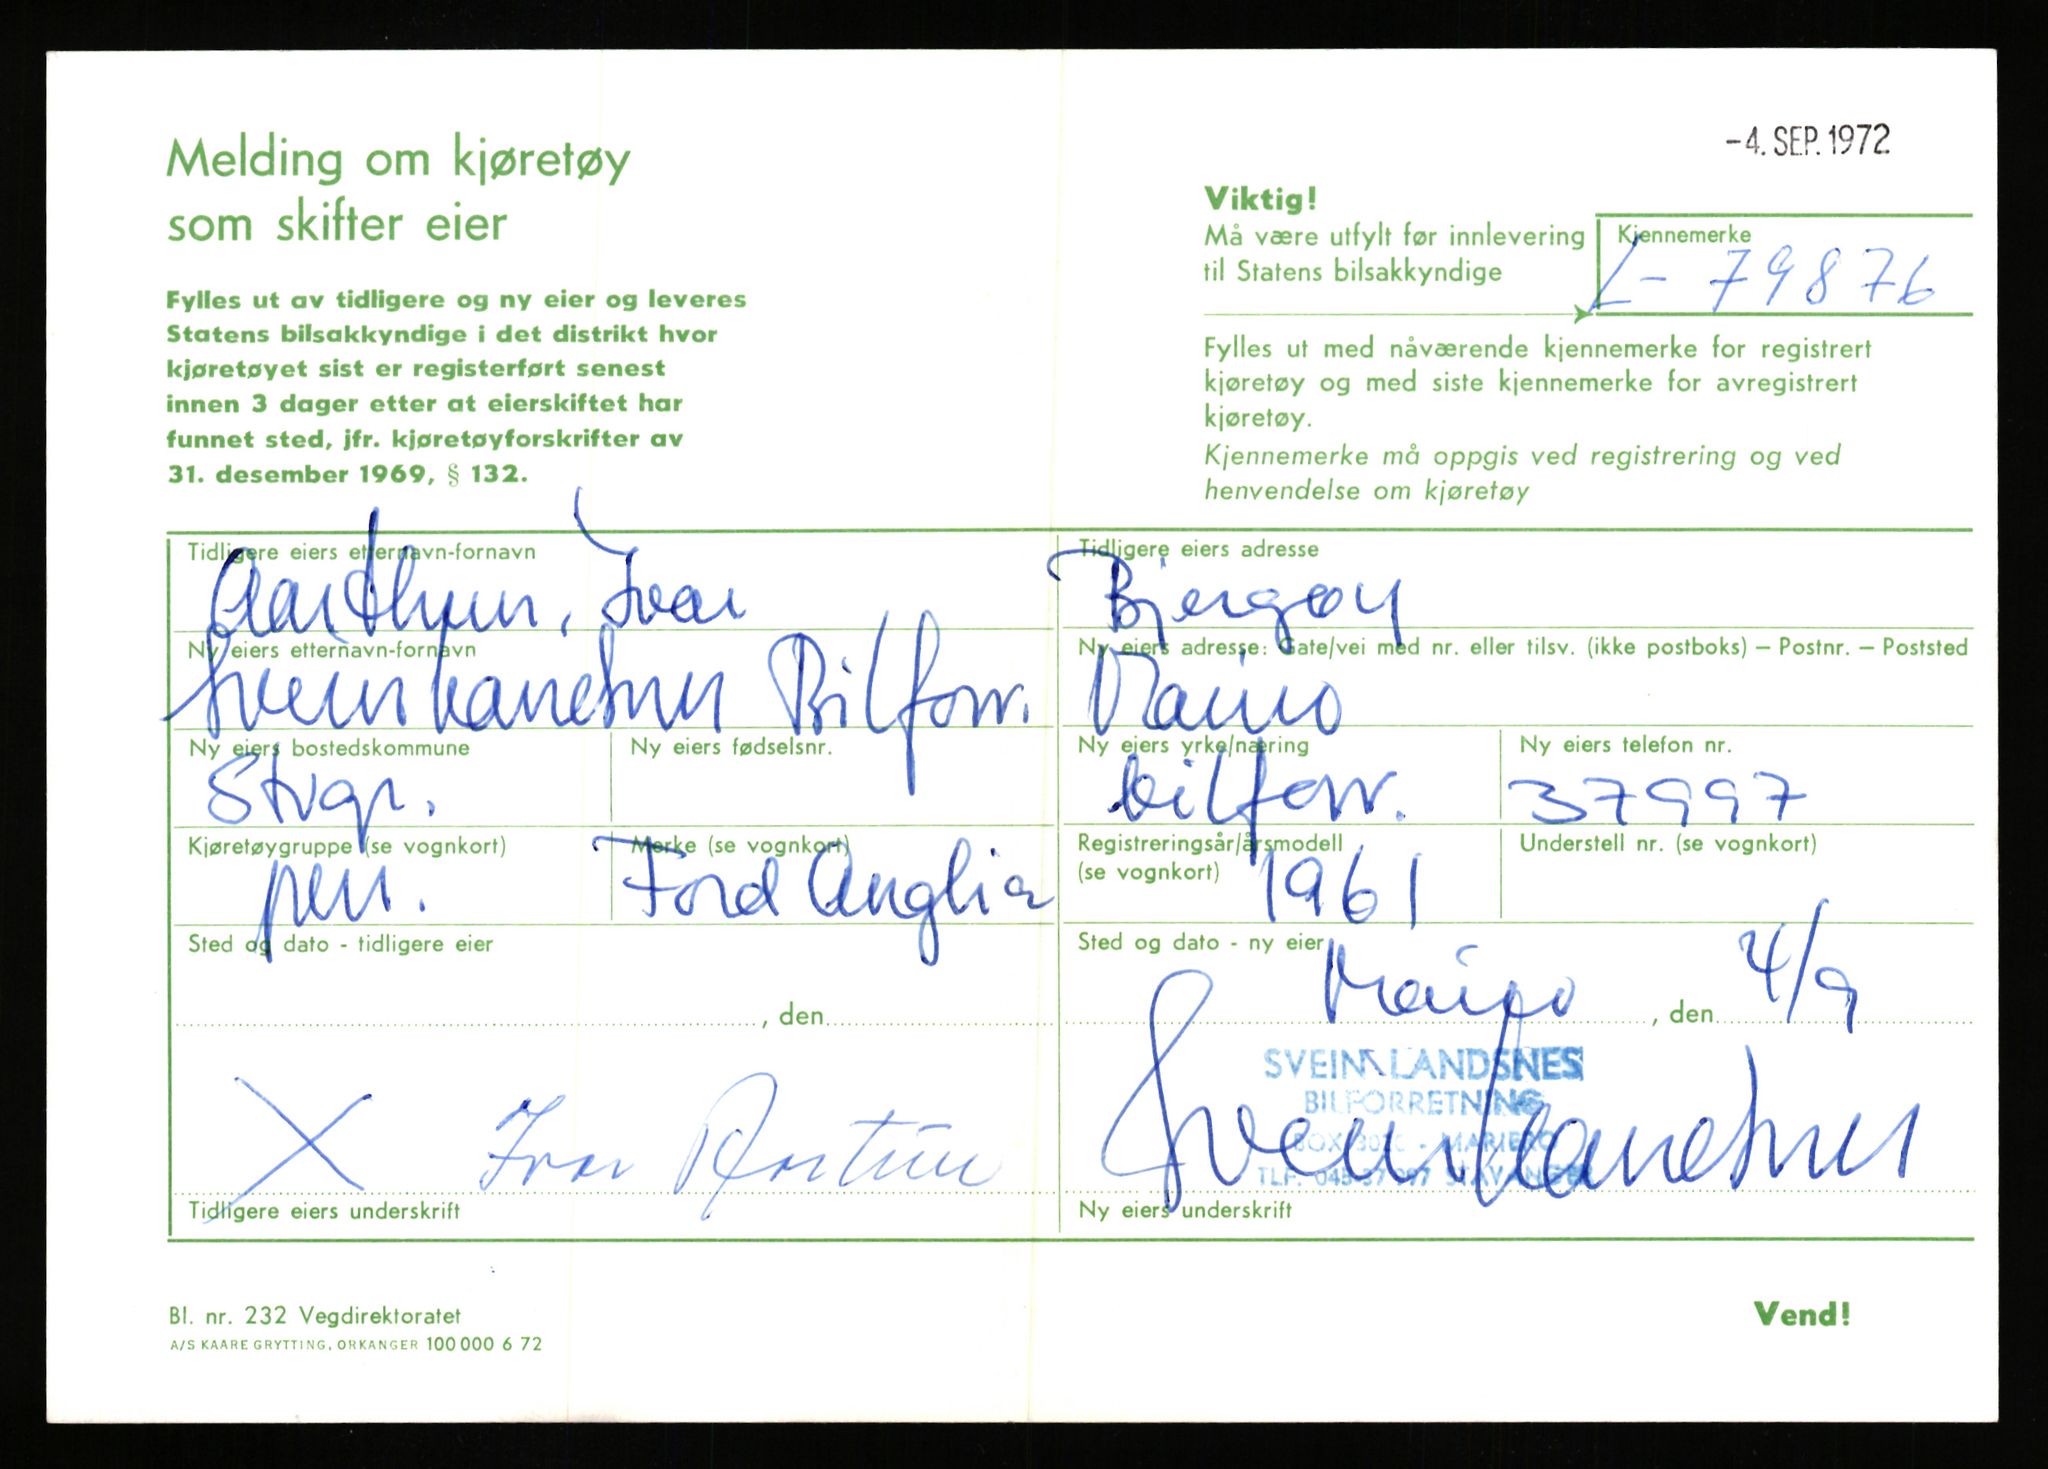 -4. SEP. 1972
Melding om kjøretøy
som skifter eier
Fylles ut av tidligere og ny eier og leveres
Statens bilsakkyndige i det distrikt hvor
kjøretøyet sist er registerført senest
innen 3 dager etter at eierskiftet har
funnet sted, jfr. kjøretøyforskrifter av
31. desember 1969, § 132.
Viktig!
Må være utfylt før innlevering
til Statens bilsakkyndige
Kjennemerke
L- 79876
Fylles ut med nåværende kjennemerke for registrert
kjøretøy og med siste kjennemerke for avregistrert
kjøretøy.
Kjennemerke må oppgis ved registrering og ved
henvendelse om kjøretøy
Tidligere eiers etternavn-fornavn
Ivar
Tidligere eiers adresse
Bjergøy
Ny eiers etternavn-fornavn
Svein Landsnes Bilforr.
Ny eiers adresse: Gate/vei med nr. eller tilsv. (ikke postboks) — Postnr. — Poststed
Ny eiers bostedskommune
Stvgr.
Ny eiers fødselsnr.
Ny eiers yrke/næring
bilforr.
Ny eiers telefon nr.
37997
Kjøretøygruppe (se vognkort)
pers.
Merke (se vognkort)
Ford Anglia
Registreringsår/årsmodell
(se vognkort)
1961
Understell nr. (se vognkort)
Sted og dato - tidligere eier
, den
Sted og dato - ny eier
, den 4/9
SVEIN LANDSNES
BILFORRETNING
- MARIERO
TLF. 045-37 997 STAVANGER
X Ivar
Svein Landsnes
Tidligere eiers underskrift
Ny eiers underskrift
Bl. nr. 232 Vegdirektoratet
A/S KAARE GRYTTING, ORKANGER 100 000 6 72
Vend!